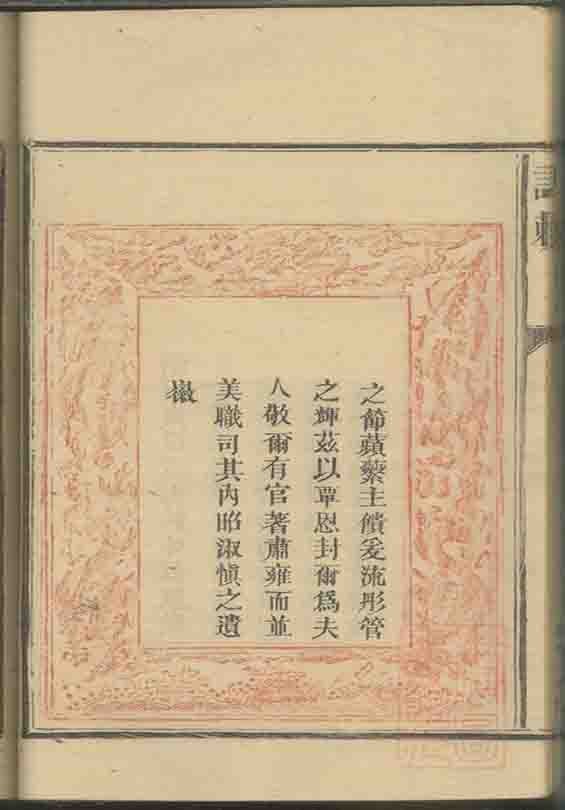 誥敕
之節蘋蘩主饋爰流彤管
之輝茲以覃恩封爾為夫
人敬爾有官著肅雍而並
美職司其內昭淑慎之遺
徽